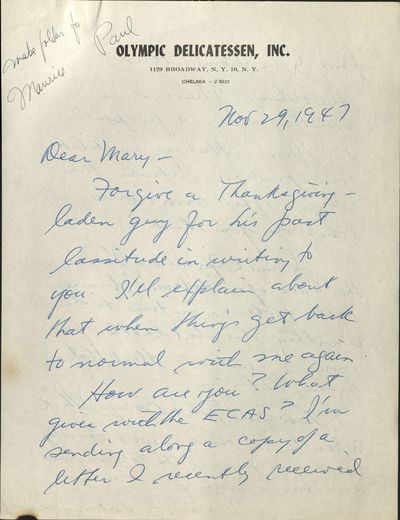 make folder for
Maurice Paul
OLYMPIC DELICATESSEN, INC.
1129 BROADWAY, N. Y. 10, N. Y.
CHELSEA - 2 8237
Nov 29, 1947
Dear Mary -
Forgive a Thanksgiving -
laden guy for his past
lassitude in writing to
you. I'll explain about
that when things get back
to normal with me again.
How are you? What
gives with the ECAS? I'm
sending along a copy of a
letter I recently received